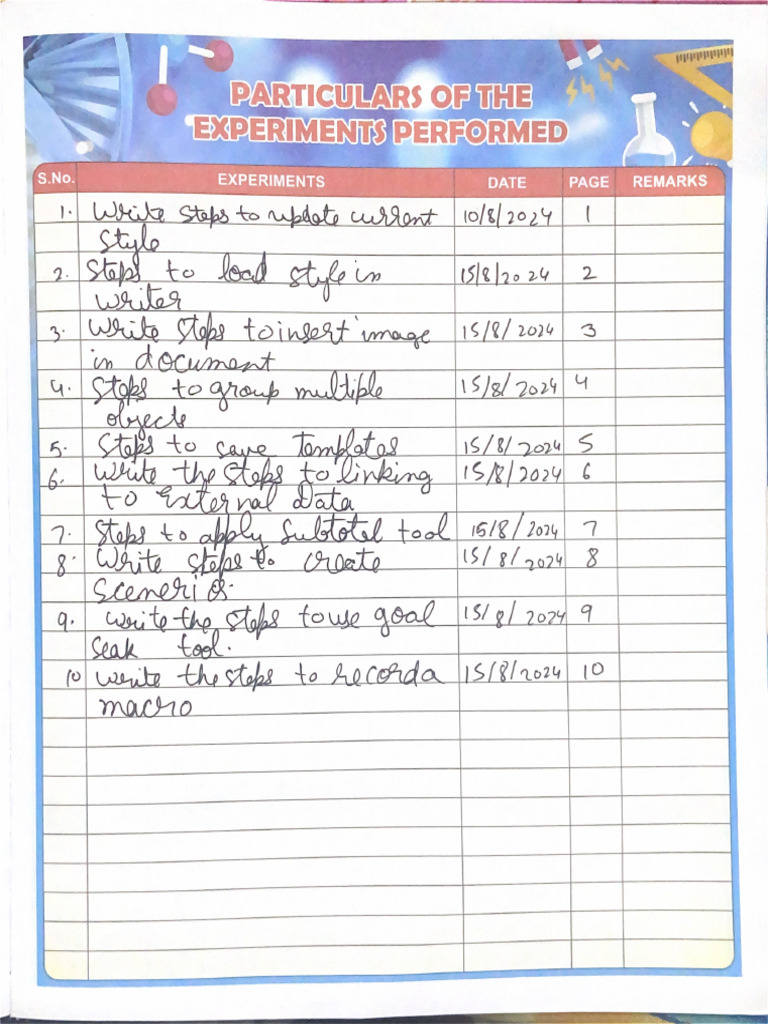 PARTICULARS OF THE
EXPERIMENTS PERFORMED
S.No. EXPERIMENTS DATE PAGE REMARKS
1. Write steps to update current 10/8/2024 1
style
2. Steps to load style in 15/8/2024 2
writer
3. Write steps to insert image 15/8/2024 3
in document
4. Steps to group multiple 15/8/2024 4
objects
5. Steps to save templates 15/8/2024 5
6. Write the steps to linking 15/8/2024 6
to External Data
7. Steps to apply Subtotal tool 15/8/2024 7
8. Write steps to create 15/8/2024 8
Scenerios.
9. write the steps to use goal 15/8/2024 9
seak tool.
10 write the steps to record a 15/8/2024 10
macro